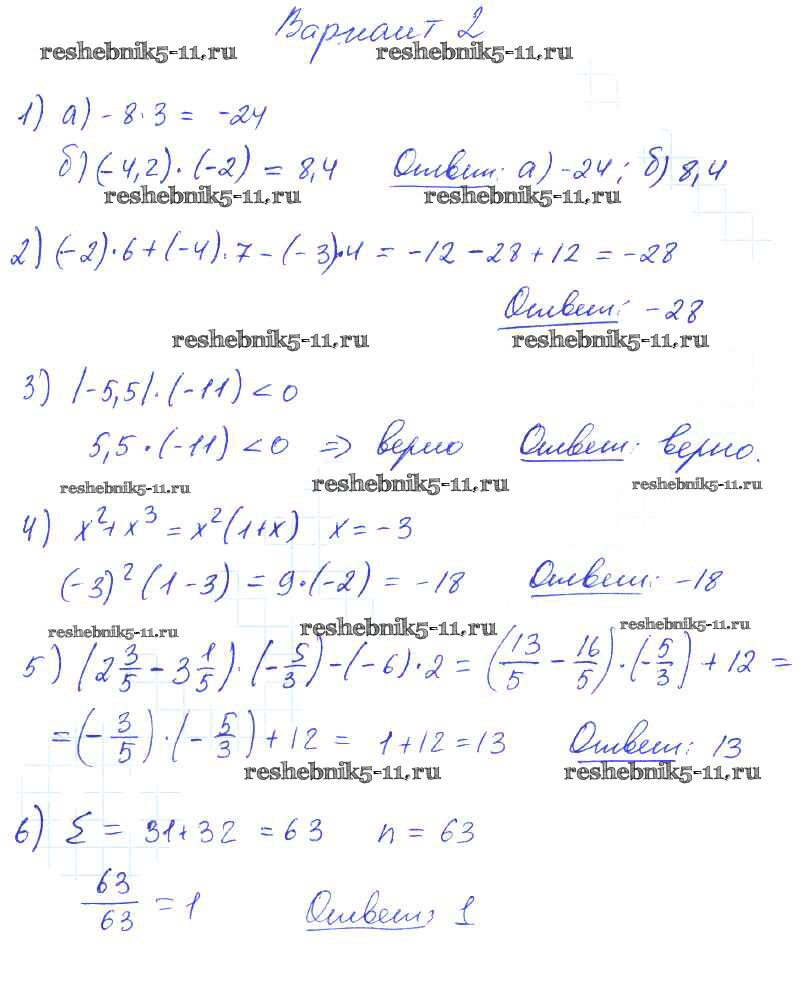 Вариант 2
reshebnik5-11.ru reshebnik5-11.ru
1) а) -8·3 = -24
б) (-4,2)·(-2) = 8,4 Ответ: а) -24; б) 8,4
reshebnik5-11.ru reshebnik5-11.ru
2) (-2)·6+(-4)·7-(-3)·4 = -12-28+12 = -28
Ответ: -28
reshebnik5-11.ru reshebnik5-11.ru
3) |-5,5|·(-11)<0
5,5·(-11)<0 => верно Ответ: верно.
reshebnik5-11.ru reshebnik5-11.ru reshebnik5-11.ru
4) x²+x³ = x²(1+x) x=-3
(-3)²(1-3) = 9·(-2) = -18 Ответ: -18
reshebnik5-11.ru reshebnik5-11.ru reshebnik5-11.ru
5) (2 3/5 - 3 1/5)·(-5/3)-(-6)·2 = (13/5 - 16/5)·(-5/3)+12 =
=(-3/5)·(-5/3)+12 = 1+12=13 Ответ: 13
reshebnik5-11.ru reshebnik5-11.ru
6) Σ = 31+32 = 63 n = 63
63/63 = 1 Ответ: 1